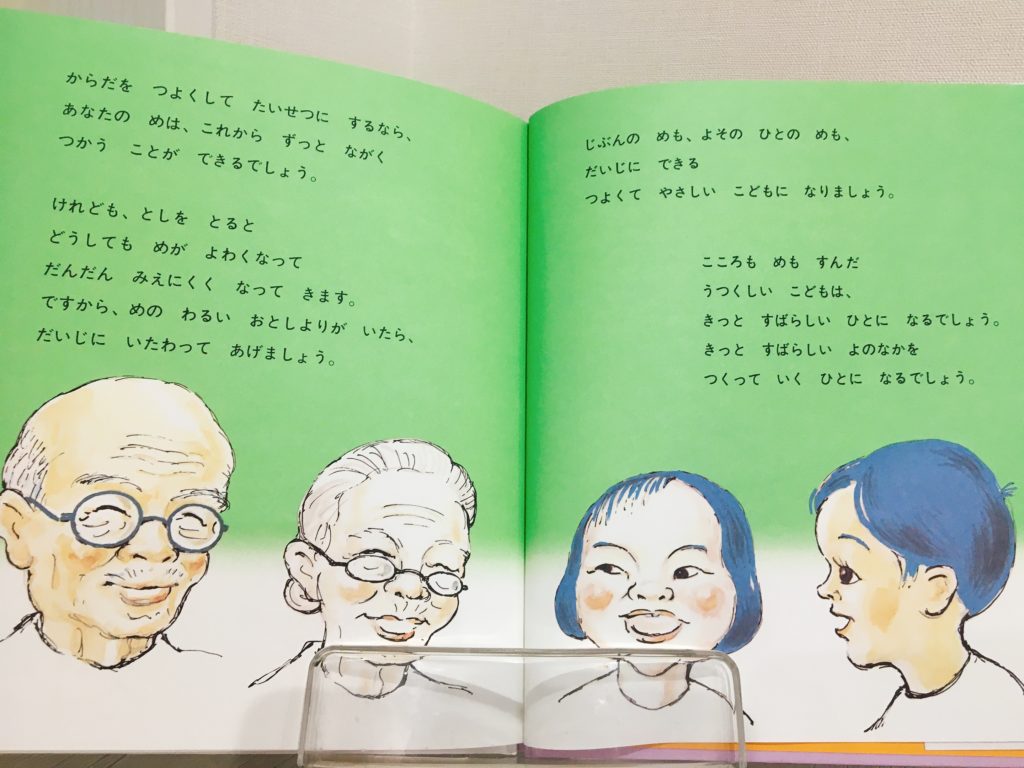 からだを　つよくして　たいせつに　するなら、
あなたの　めは、これから　ずっと　ながく
つかう　ことが　できるでしょう。
けれども、としを　とると
どうしても　めが　よわくなって
だんだん　みえにくく　なって　きます。
ですから、めの　わるい　おとしよりが　いたら、
だいじに　いたわって　あげましょう。
じぶんの　めも、よその　ひとの　めも、
だいじに　できる
つよくて　やさしい　こどもに　なりましょう。
こころも　めも　すんだ
うつくしい　こどもは、
きっと　すばらしい　ひとに　なるでしょう。
きっと　すばらしい　よのなかを
つくって　いく　ひとに　なるでしょう。